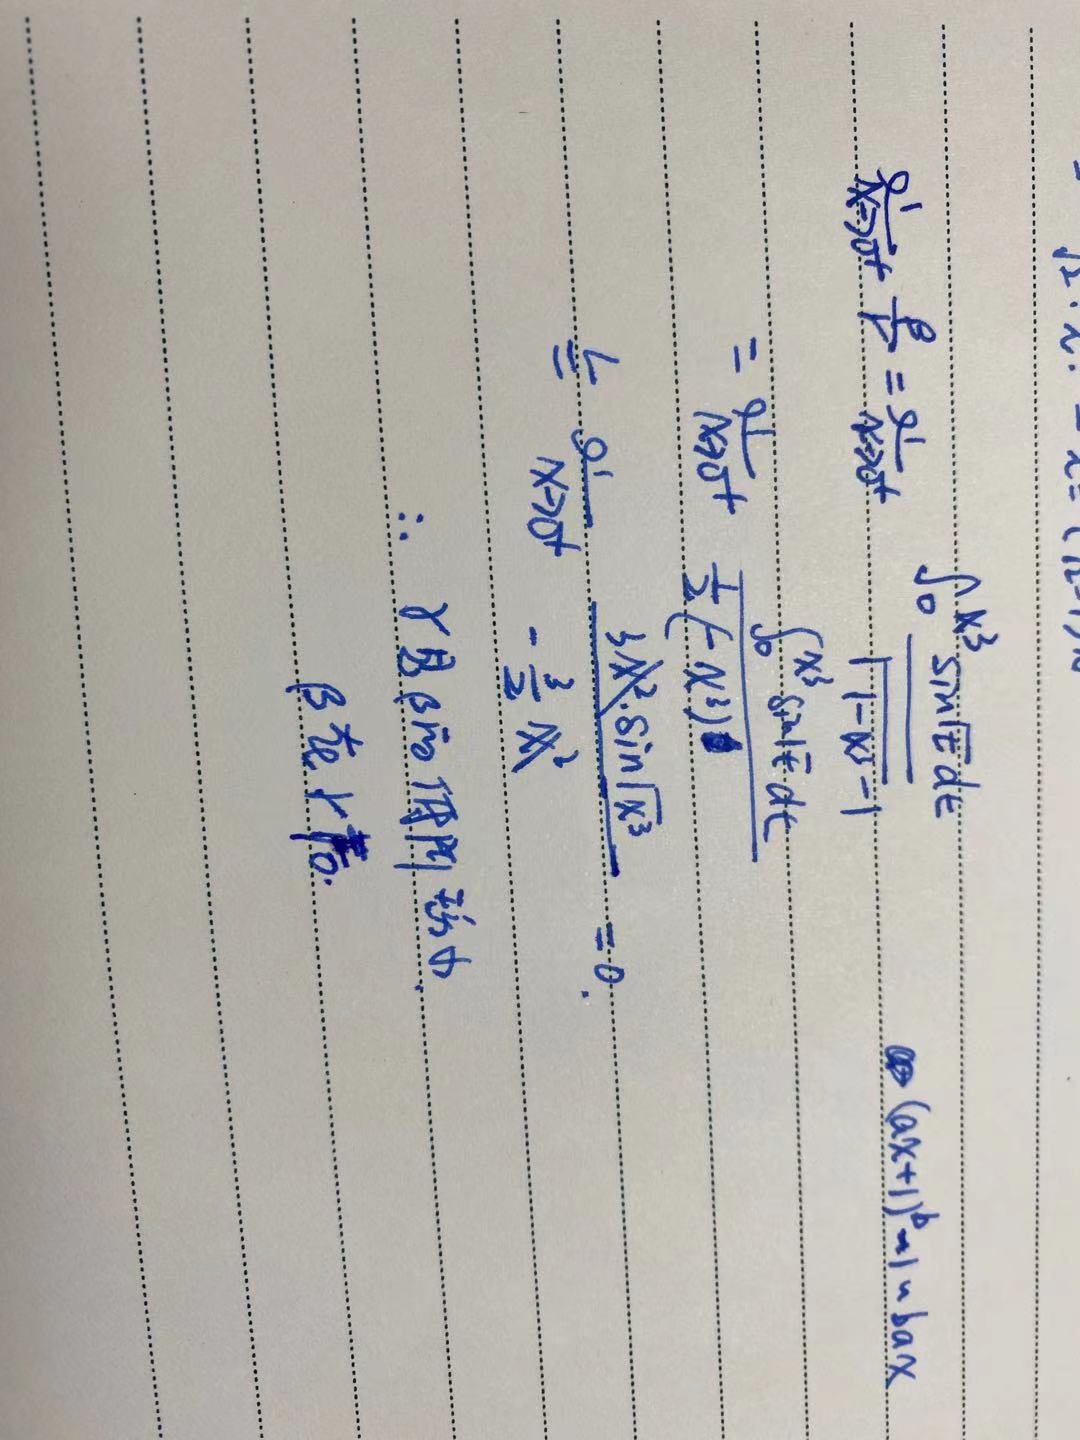 lim x→0+ β/γ = lim x→0+ ∫₀^{x³} sin√t dt / (√(1-x³) -1) (ax+1)^b -1 ~ bax
= lim x→0+ ∫₀^{x³} sin√t dt / (½(-x³))
L= lim x→0+ 3x²·sin√x³ / (-3/2 x²) = 0.
∴ γ是β的 阶
β比γ高.